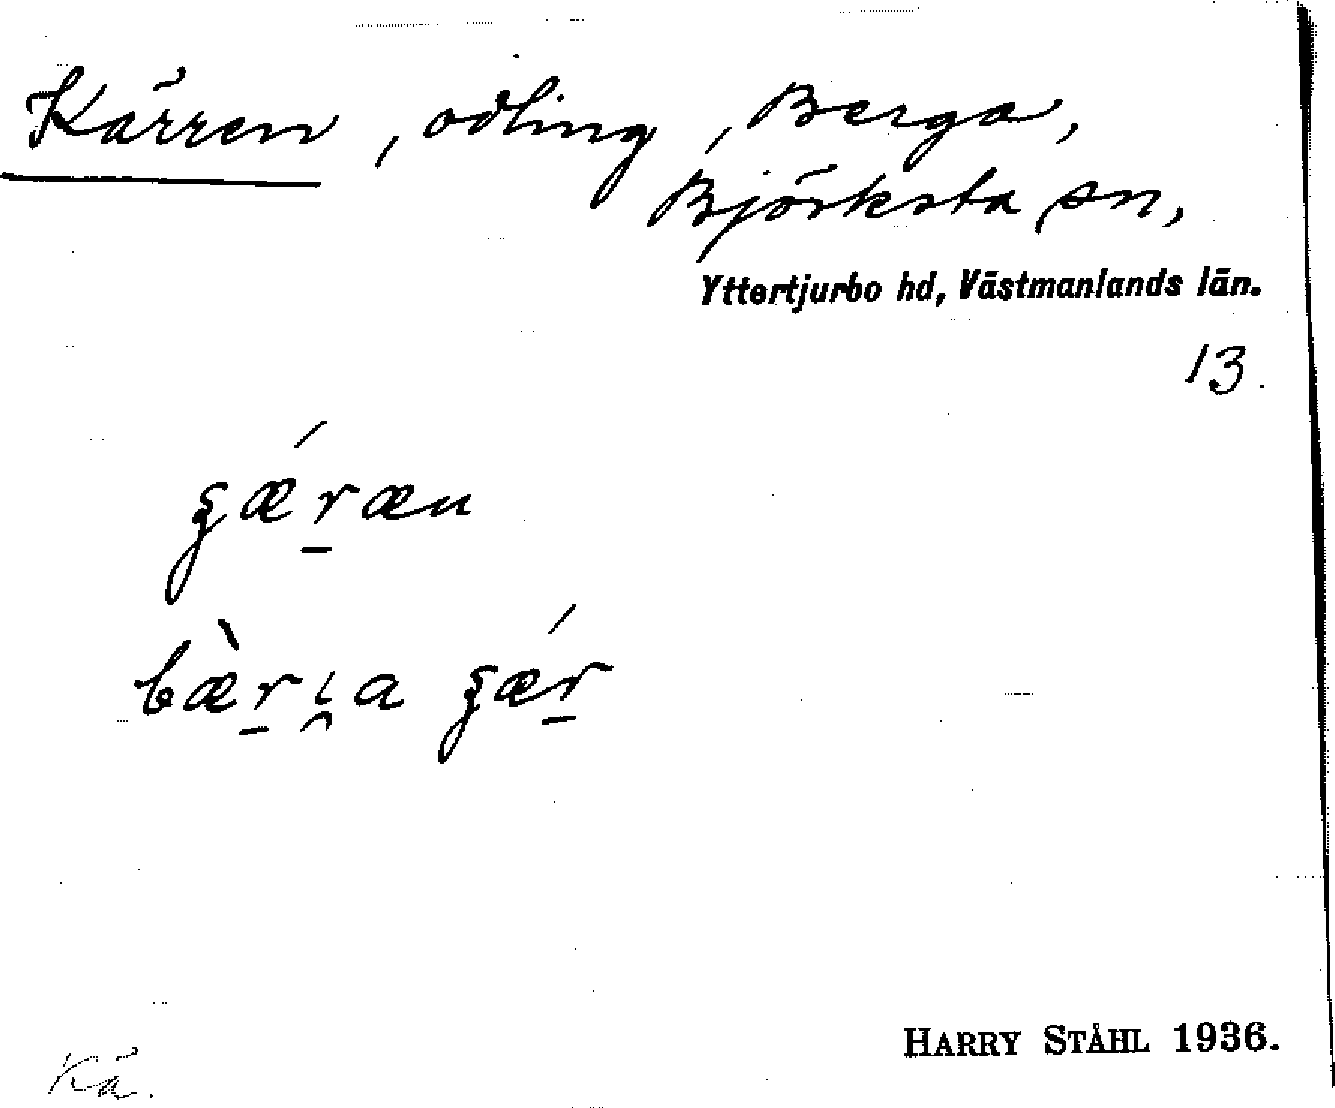 Kärren, odling, Berga,
Björksta sn,
Yttertjurbo hd, Västmanlands län.
13.
ʂǽr̠æn
bæ̀r̠i̯a ʂǽr̠
HARRY STÅHL 1936.
Kä.